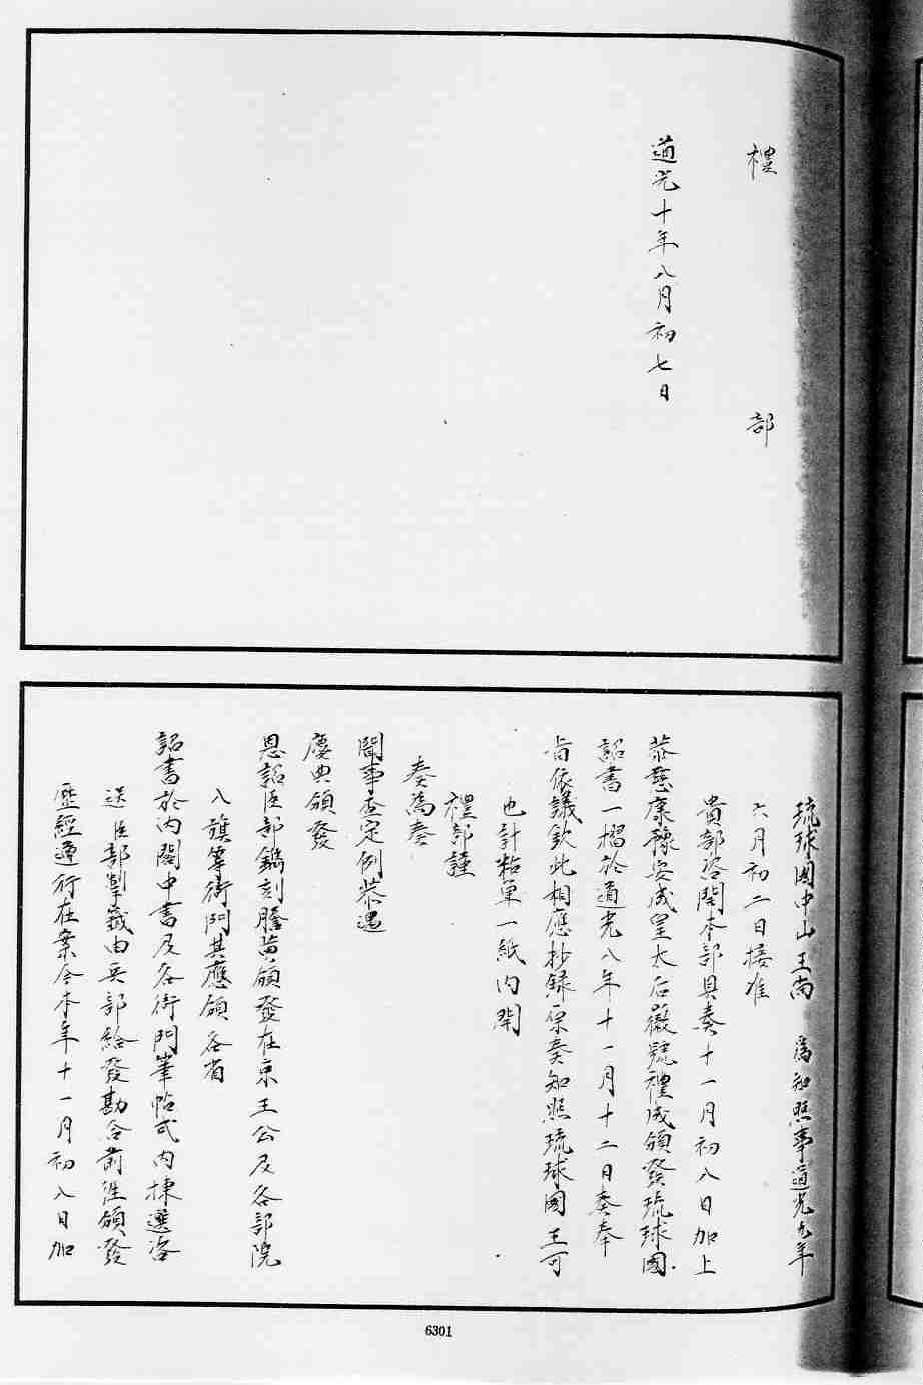 禮部
道光十年八月初七日
琉球國中山王尚 為知照事道光九年
六月初二日接准
貴部咨開本部具奏十一月初八日加上
恭慈康豫安成皇太后徽號禮成頒發琉球國
詔書一摺於道光八年十一月十二日奏奉
旨依議欽此相應抄錄原奏知照琉球國王可
也計粘單一紙內開
禮部謹
奏為奏
聞事查定例恭遇
慶典頒發
恩詔臣部鐫刻謄黃頒發在京王公及各部院
八旗等衙門其應頒各省
詔書於內閣中書及各衙門筆帖式內揀選咨
送臣部掣籤由兵部給發勘合前往頒發
歷經遵行在案今本年十一月初八日加
6301